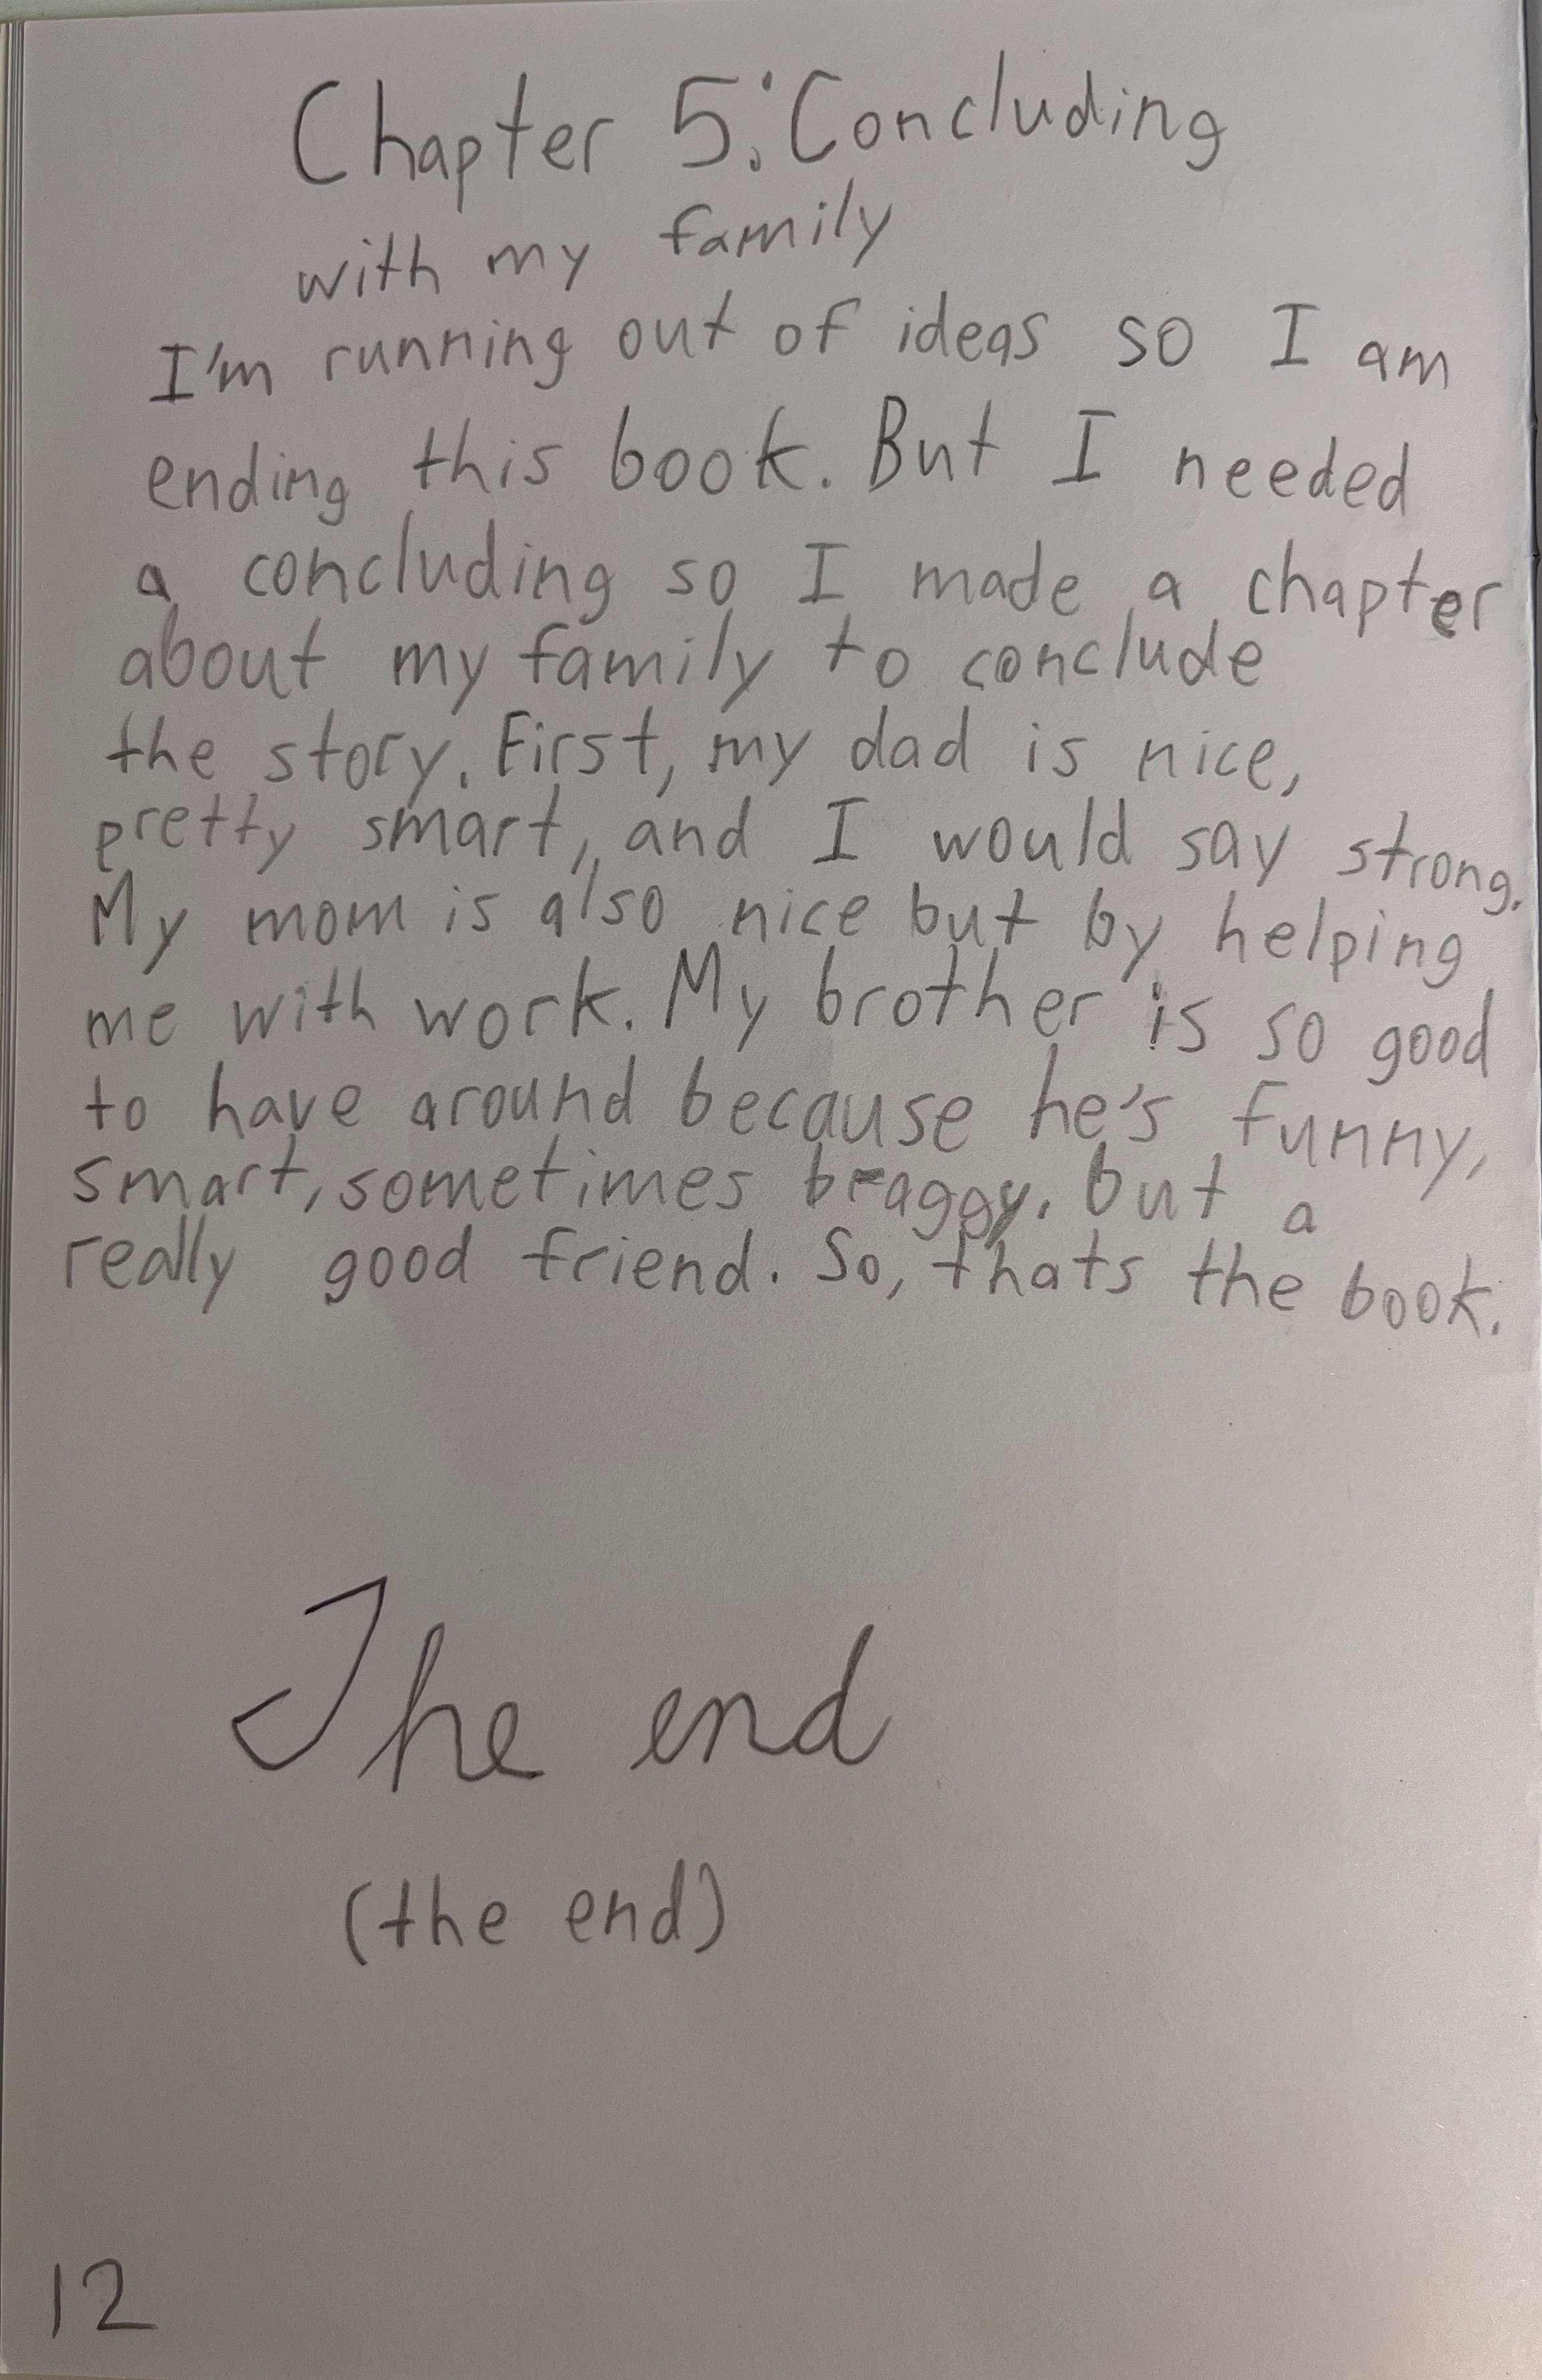 Chapter 5: Concluding
with my family
I'm running out of ideas so I am
ending this book. But I needed
a concluding so I made a chapter
about my family to conclude
the story. First, my dad is nice,
pretty smart, and I would say strong.
My mom is also nice but by helping
me with work. My brother is so good
to have around because he's funny,
smart, sometimes braggy. but a
really good friend. So, thats the book.
The end
(the end)
12